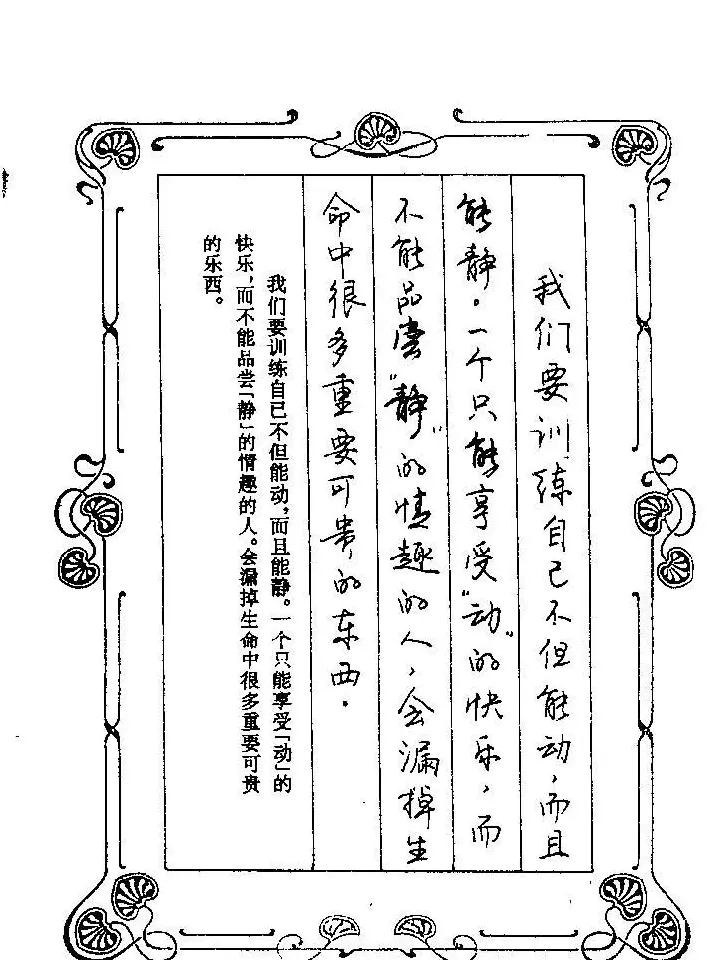 我们要训练自己不但能动，而且
能静。一个只能享受“动”的快乐，而
不能品尝“静”的情趣的人，会漏掉生
命中很多重要可贵的东西.
我们要训练自己不但能动，而且能静。一个只能享受「动」的
快乐，而不能品尝「静」的情趣的人。会漏掉生命中很多重要可贵
的乐西。